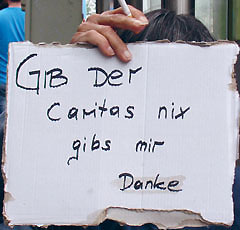 GIB Der
Caritas nix
gibs mir
Danke